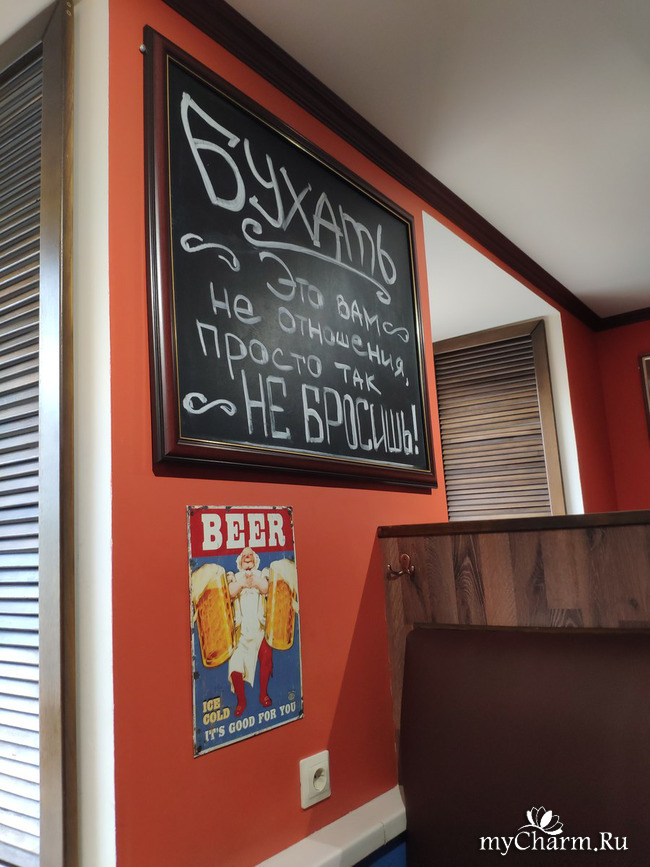 БУХАТЬ
Это ВАМ
не отношения,
просто так
НЕ БРОСИШЬ!
BEER
ICE
COLD
IT'S GOOD FOR YOU
myCharm.Ru